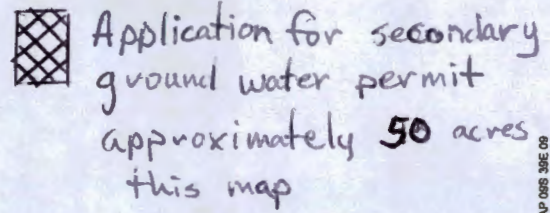 Application for secondary
ground water permit
approximately 50 acres
this map
AP 09S 39E 09